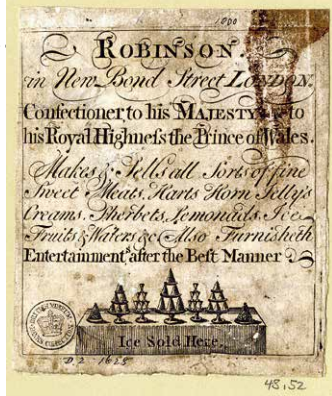 1000
ROBINSON.
in New Bond Street LONDON.
Confectioner to his MAJESTY & to
his Royal Highneſs the Prince of Wales.
Makes & Sells all Sorts of fine
Sweet Meats, Harts Horn Jelly's
Creams, Sherbets, Lemonads, Ice
Fruits & Waters &c Also Furnisheth
Entertainments after the Beſt Manner
Ice Sold Here.
D,2 1625
48,52